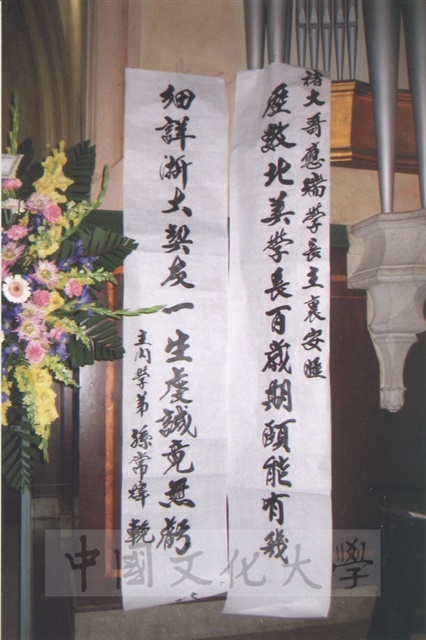 褚大哥應瑞學長主裏安
歷數北美學長百歲期頤能有幾
細詳浙大契友一生虔誠竟無虧
主內學弟 孫常煒 輓
中國文化大學